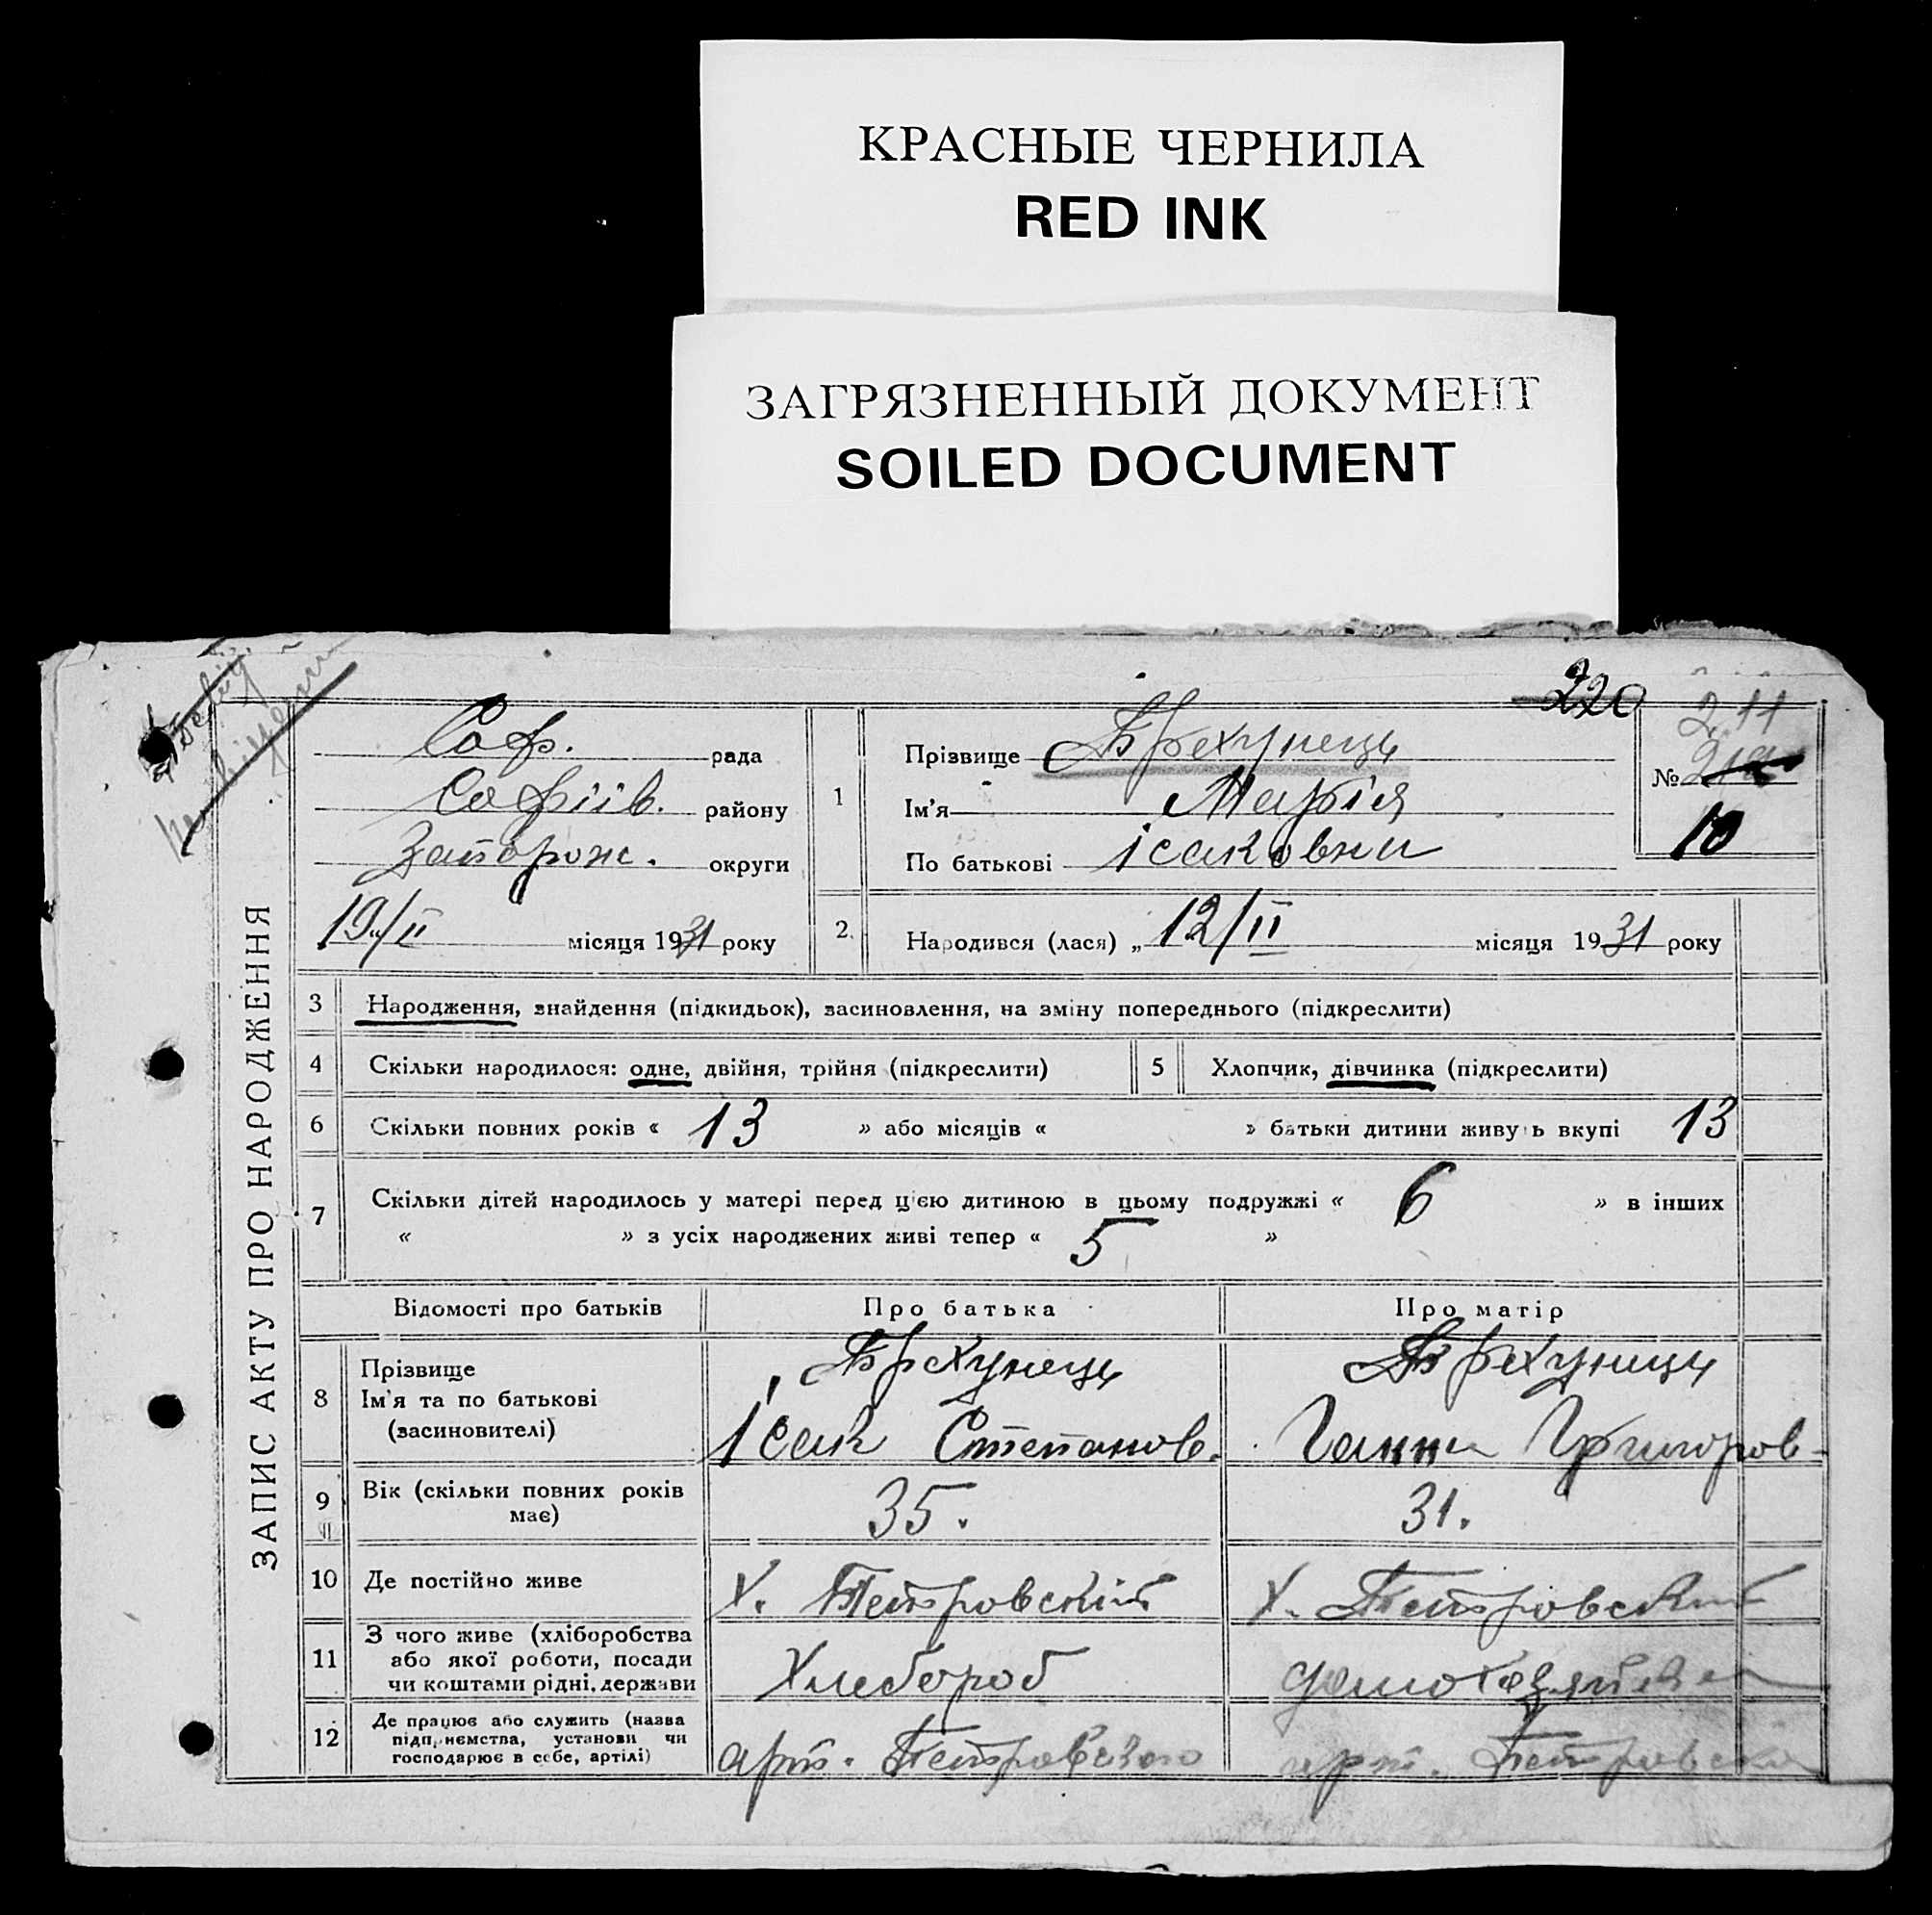 КРАСНЫЕ ЧЕРНИЛА
RED INK
ЗАГРЯЗНЕННЫЙ ДОКУМЕНТ
SOILED DOCUMENT
220
211
ЗАПИС АКТУ ПРО НАРОДЖЕННЯ
Соф. рада
Софіїв. району
Запорож. округи
19/II місяця 1931 року
1 Прізвище Брехунець
Ім'я Марія
По батькові Ісаковна
№
10
2. Народився (лася) „ 12/II місяця 1931 року
3 Народження, знайдення (підкидьок), засиновлення, на зміну попереднього (підкреслити)
4 Скільки народилося: одне, двійня, трійня (підкреслити) 5 Хлопчик, дівчинка (підкреслити)
6 Скільки повних років « 13 » або місяців « » батьки дитини живуть вкупі 13
7 Скільки дітей народилось у матері перед цією дитиною в цьому подружжі « 6 » в інших
« » з усіх народжених живі тепер « 5 »
Відомості про батьків Про батька Про матір
8 Прізвище Брехунець Брехунець
Ім'я та по батькові Ісак Степанов. Ганна Григоров-
(засиновителі)
9 Вік (скільки повних років 35. 31.
має)
10 Де постійно живе Х. Петровский Х. Петровский
11 З чого живе (хліборобства
або якої роботи, посади Хлебороб домохозяйка
чи коштами рідні, держави
12 Де працює або служить (назва
підприємства, установи чи арт. Петровского арт. Петровско
господарює в себе, артілі)